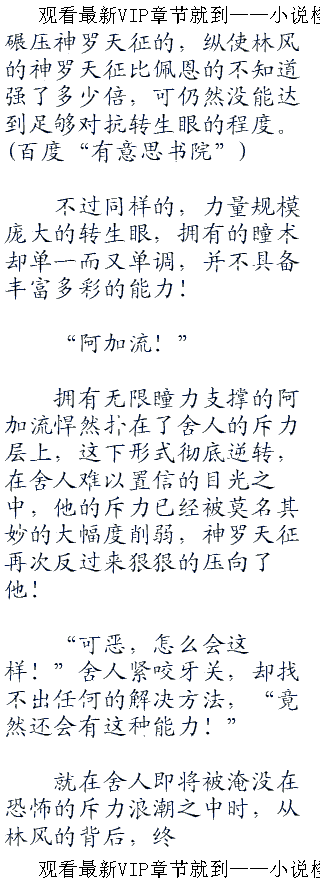 观看最新VIP章节就到——小说检
碾压神罗天征的，纵使林风
的神罗天征比佩恩的不知道
强了多少倍，可仍然没能达
到足够对抗转生眼的程度。
(百度“有意思书院”)
不过同样的，力量规模
庞大的转生眼，拥有的瞳术
却单一而又单调，并不具备
丰富多彩的能力！
“阿加流！”
拥有无限瞳力支撑的阿
加流悍然扑在了舍人的斥力
层上，这下形式彻底逆转，
在舍人难以置信的目光之
中，他的斥力已经被莫名其
妙的大幅度削弱，神罗天征
再次反过来狠狠的压向了
他！
“可恶，怎么会这
样！”舍人紧咬牙关，却找
不出任何的解决方法，“竟
然还会有这种能力！”
就在舍人即将被淹没在
恐怖的斥力浪潮之中时，从
林风的背后，终
观看最新VIP章节就到——小说检